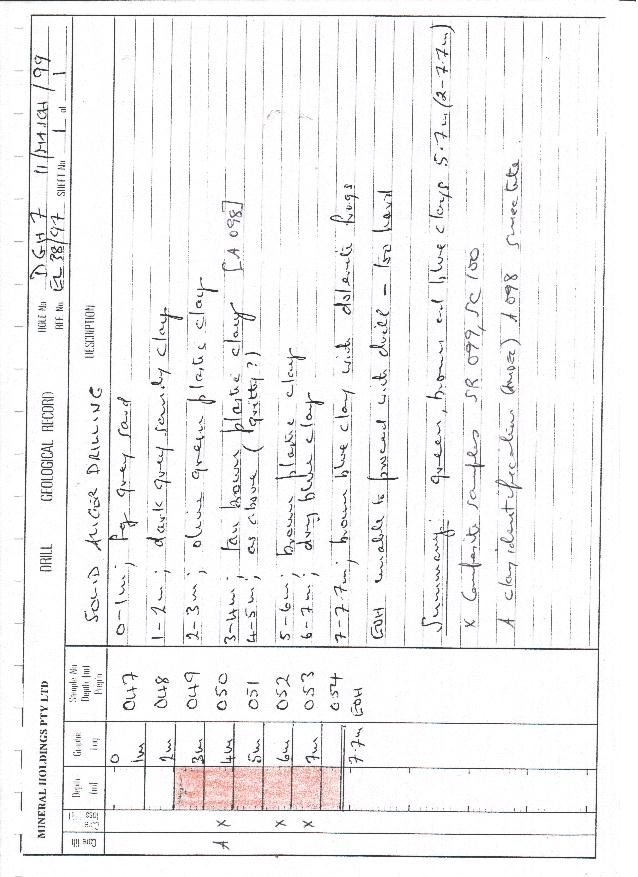 MINERAL HOLDINGS PTY LTD
DRILL GEOLOGICAL RECORD
HOLE No DGH 7 11/MARCH/99
REF. No. EL 38/97 SHEET No 1 of 1
Core
Depth
Graphic Log
Sample No
Depth
DESCRIPTION
SOLID AUGER DRILLING
0
047 0-1m; fg grey sand
1m
048 1-2m; dark grey sandy clay
2m
049 2-3m; olive green plastic clay
3m
050 3-4m; tan brown plastic clay [A 098]
A X 4m
051 4-5m; as above (gritty?)
5m
052 5-6m; brown plastic clay
X 6m
053 6-7m; dry blue clay
X 7m
054 7-7.7m; brown blue clay with dolerite frags
7.7m EOH
EOH unable to proceed with drill - too hard
Summary: green, brown and blue clays 5.7m (2-7.7m)
X Composite samples SR 099, SC 100
A clay identification A098 smectite.